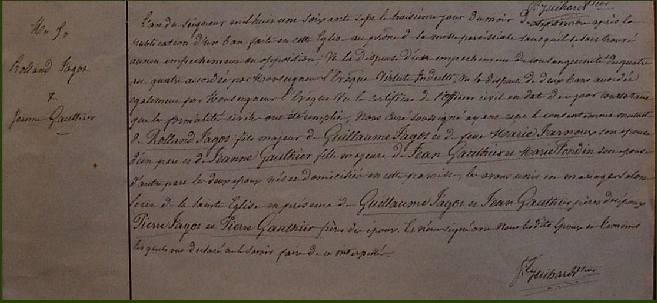 Mr Le
Rolland Jagot
&
Jeanne Gauthier
Jh Guihard Rter
L'an du Seigneur mil huit cent soixante sept le troisième jour du mois de Septembre après la
publication d'un ban faite en cette Eglise au prône de la messe paroissiale sans qu'il se soit trouvé
aucun empêchement ou opposition; Vu la dispense d'un empêchement de consanguinité du quatre
au quatre accordée par Monseigneur l'Evêque Vu la dispense de deux bans accordée
également par Monseigneur l'Evêque Vu le certificat de l'Officier civil en date du jour constatant
que la formalité civile a été remplie, Nous curé soussigné ayant reçu le consentement mutuel
de Rolland Jagot fils majeur de Guillaume Jagot et de feue Marie son épouse
d'une part et de Jeanne Gauthier fille majeure de Jean Gauthier et Marie son épouse
d'autre part les deux époux nés et domiciliés en cette paroisse, les avons unis en mariage selon
de la Sainte Eglise en présence de Guillaume Jagot et Jean Gauthier pères des époux
Pierre Jagot et Pierre Gauthier frères des époux. Nous les dits époux et témoins
lesquels ont déclaré ne le savoir faire de ce interpellés.
Jh Guihard Rter